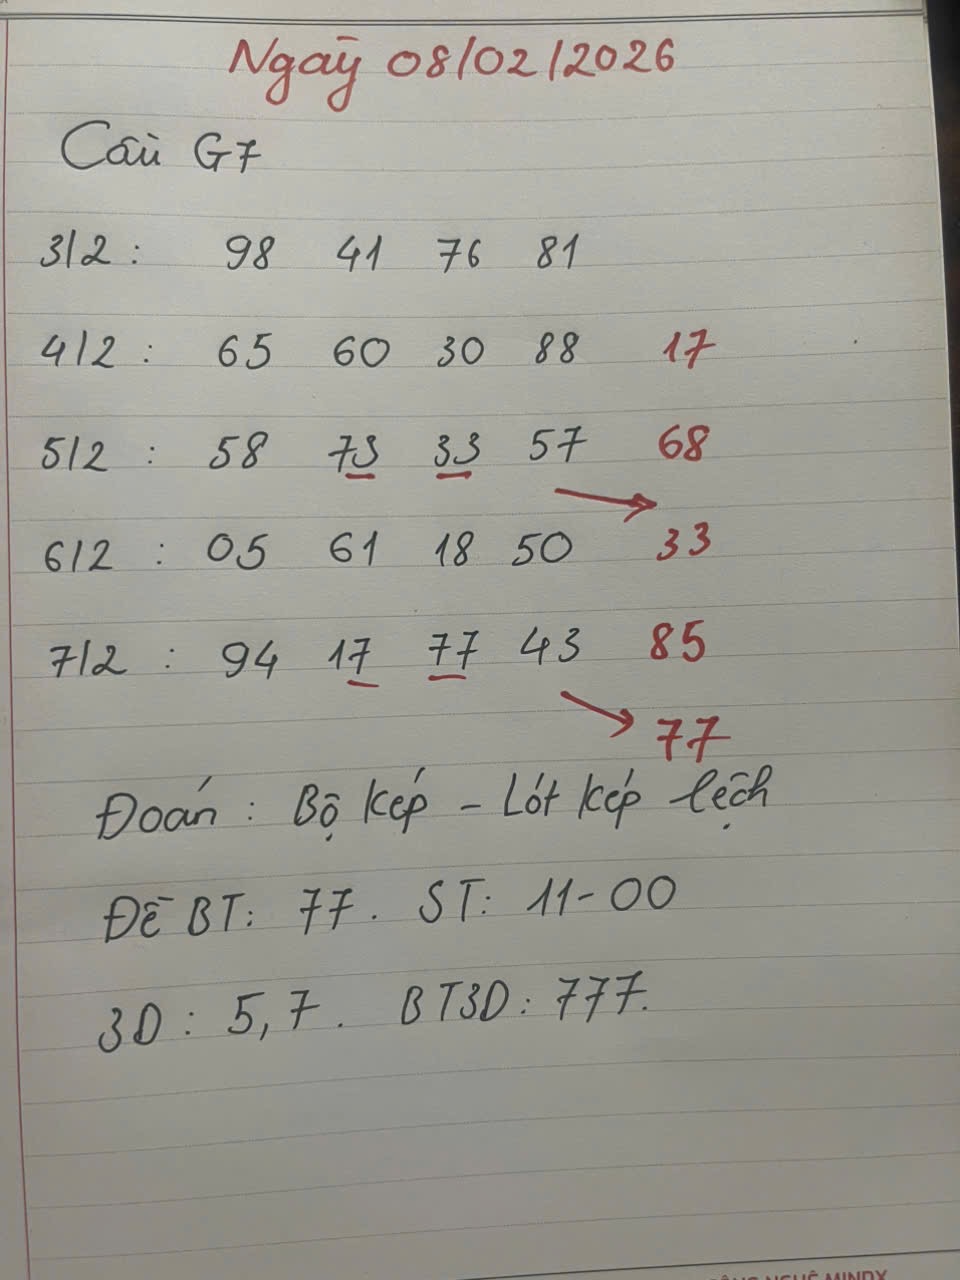 Ngày 08/02/2026
Cầu G7
3/2 : 98 41 76 81
4/2 : 65 60 30 88 17
5/2 : 58 73 33 57 68
6/2 : 05 61 18 50 33
7/2 : 94 17 77 43 85
77
Đoán : Bộ kép - Lót kép lệch
ĐỀ BT: 77. ST: 11-00
3D : 5,7. BT3D: 777.
NGHỆ MINDX